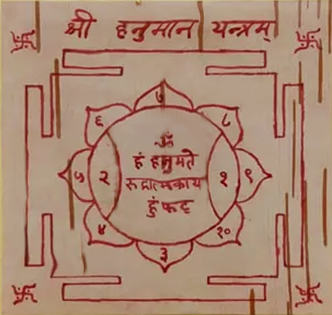 श्री हनुमान यन्त्रम्
७
६ ८
ॐ
हं हनुमते
५ २ १ ९
रुद्रात्मकाय
हुं फट्
४ १०
३